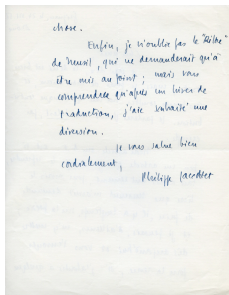 chose.
Enfin, je n'oublie pas le "Rilke"
de Seuil, qui ne demanderait qu'à
être mis au point ; mais vous
comprendrez qu'après un hiver de
traduction, j'aie souhaité une
diversion.
Je vous salue bien
cordialement,
Philippe Jaccottet